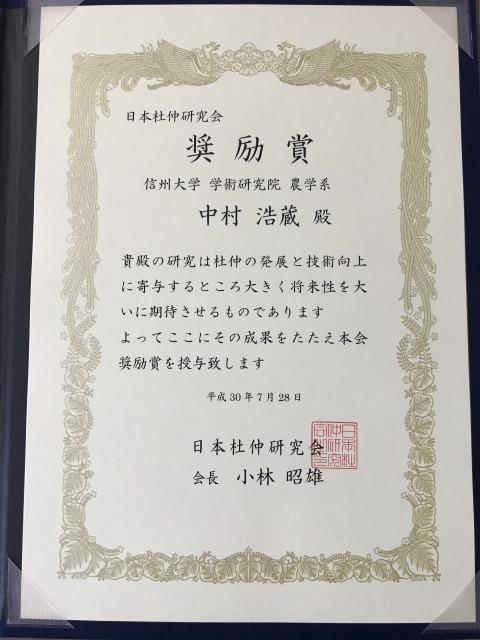 日本杜仲研究会
奨励賞
信州大学 学術研究院 農学系
中村 浩蔵 殿
貴殿の研究は杜仲の発展と技術向上
に寄与するところ大きく将来性を大
いに期待させるものであります
よってここにその成果をたたえ本会
奨励賞を授与致します
平成30年7月28日
日本杜仲研究会
会長 小林 昭雄